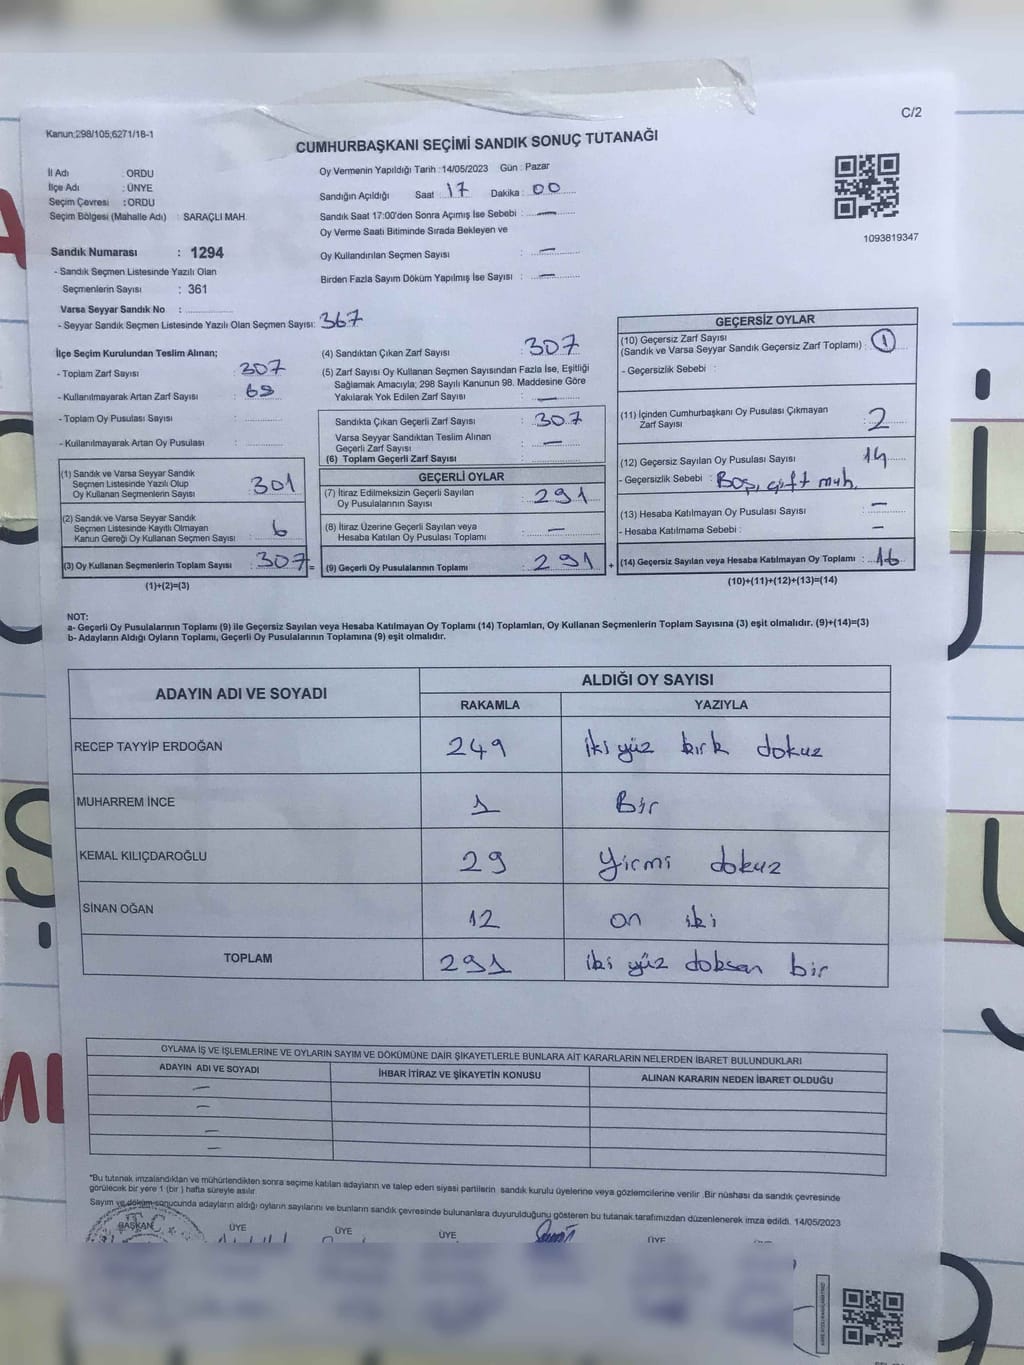 C/2
Kanun;298/105;6271/18-1
CUMHURBAŞKANI SEÇİMİ SANDIK SONUÇ TUTANAĞI
İl Adı : ORDU
İlçe Adı : ÜNYE
Seçim Çevresi : ORDU
Seçim Bölgesi (Mahalle Adı) : SARAÇLI MAH.
Sandık Numarası : 1294
- Sandık Seçmen Listesinde Yazılı Olan
Seçmenlerin Sayısı : 361
Varsa Seyyar Sandık No : ..............
- Seyyar Sandık Seçmen Listesinde Yazılı Olan Seçmen Sayısı: 367
Oy Vermenin Yapıldığı Tarih : 14/05/2023 Gün : Pazar
Sandığın Açıldığı Saat : 17 Dakika : 00
Sandık Saat 17:00'den Sonra Açımış İse Sebebi : —
Oy Verme Saati Bitiminde Sırada Bekleyen ve
Oy Kullandırılan Seçmen Sayısı : —
Birden Fazla Sayım Döküm Yapılmış İse Sayısı : —
1093819347
İlçe Seçim Kurulundan Teslim Alınan;
- Toplam Zarf Sayısı : 307
- Kullanılmayarak Artan Zarf Sayısı : 69
- Toplam Oy Pusulası Sayısı : ..............
- Kullanılmayarak Artan Oy Pusulası : ..............
(1) Sandık ve Varsa Seyyar Sandık
Seçmen Listesinde Yazılı Olup
Oy Kullanan Seçmenlerin Sayısı : 301
(2) Sandık ve Varsa Seyyar Sandık
Seçmen Listesinde Kayıtlı Olmayan
Kanun Gereği Oy Kullanan Seçmen Sayısı : 6
(3) Oy Kullanan Seçmenlerin Toplam Sayısı : 307 =
(1)+(2)=(3)
(4) Sandıktan Çıkan Zarf Sayısı : 307
(5) Zarf Sayısı Oy Kullanan Seçmen Sayısından Fazla İse, Eşitliği
Sağlamak Amacıyla; 298 Sayılı Kanunun 98. Maddesine Göre
Yakılarak Yok Edilen Zarf Sayısı : —
Sandıkta Çıkan Geçerli Zarf Sayısı : 307
Varsa Seyyar Sandıktan Teslim Alınan
Geçerli Zarf Sayısı : —
(6) Toplam Geçerli Zarf Sayısı
GEÇERLİ OYLAR
(7) İtiraz Edilmeksizin Geçerli Sayılan
Oy Pusulalarının Sayısı : 291
(8) İtiraz Üzerine Geçerli Sayılan veya
Hesaba Katılan Oy Pusulası Toplamı : —
(9) Geçerli Oy Pusulalarının Toplamı : 291 +
GEÇERSİZ OYLAR
(10) Geçersiz Zarf Sayısı
(Sandık ve Varsa Seyyar Sandık Geçersiz Zarf Toplamı) : 1
- Geçersizlik Sebebi :
(11) İçinden Cumhurbaşkanı Oy Pusulası Çıkmayan
Zarf Sayısı : 2
(12) Geçersiz Sayılan Oy Pusulası Sayısı : 14
- Geçersizlik Sebebi : Boş, çift muh.
(13) Hesaba Katılmayan Oy Pusulası Sayısı : —
- Hesaba Katılmama Sebebi : —
(14) Geçersiz Sayılan veya Hesaba Katılmayan Oy Toplamı : 16
(10)+(11)+(12)+(13)=(14)
NOT:
a- Geçerli Oy Pusulalarının Toplamı (9) ile Geçersiz Sayılan veya Hesaba Katılmayan Oy Toplamı (14) Toplamları, Oy Kullanan Seçmenlerin Toplam Sayısına (3) eşit olmalıdır. (9)+(14)=(3)
b- Adayların Aldığı Oyların Toplamı, Geçerli Oy Pusulalarının Toplamına (9) eşit olmalıdır.
ADAYIN ADI VE SOYADI ALDIĞI OY SAYISI
RAKAMLA YAZIYLA
RECEP TAYYİP ERDOĞAN 249 iki yüz kırk dokuz
MUHARREM İNCE 1 Bir
KEMAL KILIÇDAROĞLU 29 Yirmi dokuz
SİNAN OĞAN 12 on iki
TOPLAM 291 iki yüz doksan bir
OYLAMA İŞ VE İŞLEMLERİNE VE OYLARIN SAYIM VE DÖKÜMÜNE DAİR ŞİKAYETLERLE BUNLARA AİT KARARLARIN NELERDEN İBARET BULUNDUKLARI
ADAYIN ADI VE SOYADI İHBAR İTİRAZ VE ŞİKAYETİN KONUSU ALINAN KARARIN NEDEN İBARET OLDUĞU
—
—
—
—
*Bu tutanak imzalandıktan ve mühürlendikten sonra seçime katılan adayların ve talep eden siyasi partilerin sandık kurulu üyelerine veya gözlemcilerine verilir .Bir nüshası da sandık çevresinde
görülecek bir yere 1 (bir ) hafta süreyle asılır.
Sayım ve döküm sonucunda adayların aldığı oyların sayılarını ve bunların sandık çevresinde bulunanlara duyurulduğunu gösteren bu tutanak tarafımızdan düzenlenerek imza edildi. 14/05/2023
BAŞKAN ÜYE ÜYE ÜYE ÜYE